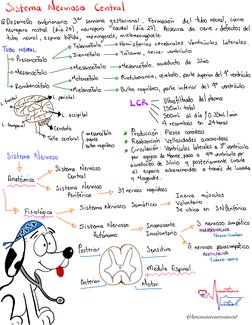 Sistema Nervioso Central
Desarrollo embrionario 3ª semana gestacional. Formación del tubo neural, cierre
neuroporo rostral (día 24), neuroporo caudal (día 27). Ausencia de cierre = defectos del
tubo neural, espina bífida, meningocele, mielomeningocele.
TUBO NEURAL
Prosencéfalo
Telencéfalo → Hemisferios cerebrales, Ventrículos laterales.
Diencéfalo → Tálamo, tercer ventrículo
Mesencéfalo → Mesencéfalo → Mesencéfalo, acueducto de Silvio
Rombencéfalo
Metencéfalo → Protuberancia, cerebelo, parte superior del 4º ventrículo
Mielencéfalo → Bulbo raquídeo, parte inferior del 4º ventrículo
L. frontal
L. parietal
L. occipital
L. temporal
Cerebelo
Tallo cerebral
mesencéfalo
puente
bulbo raquídeo
LCR
Ultrafiltrado del plasma
150ml total
500ml al día
4 recambios en 24 horas
Producción: Plexos coroideos
Reabsorción: Vellosidades aracnoideas
Circulación: Ventrículos laterales a 3º ventrículo
por agujero de Monro, pasa a 4º ventrículo por
acueducto de Silvio y posteriormente circula
al espacio subaracnoideo a través de Luschka
y Magendie.
Sistema Nervioso
Anatómico
Sistema Nervioso
Central
Sistema Nervioso
Periférico
31 nervios raquídeos
Fisiológico
Sistema Nervioso Somático
Inerva músculos
Voluntario
Se ubica en S.N. Periférico
Sistema Nervioso
Autónomo
Involuntario
S. nervioso simpático
S. nervioso parasimpático
Posterior
Sensitiva
Médula Espinal
Anterior
Motor